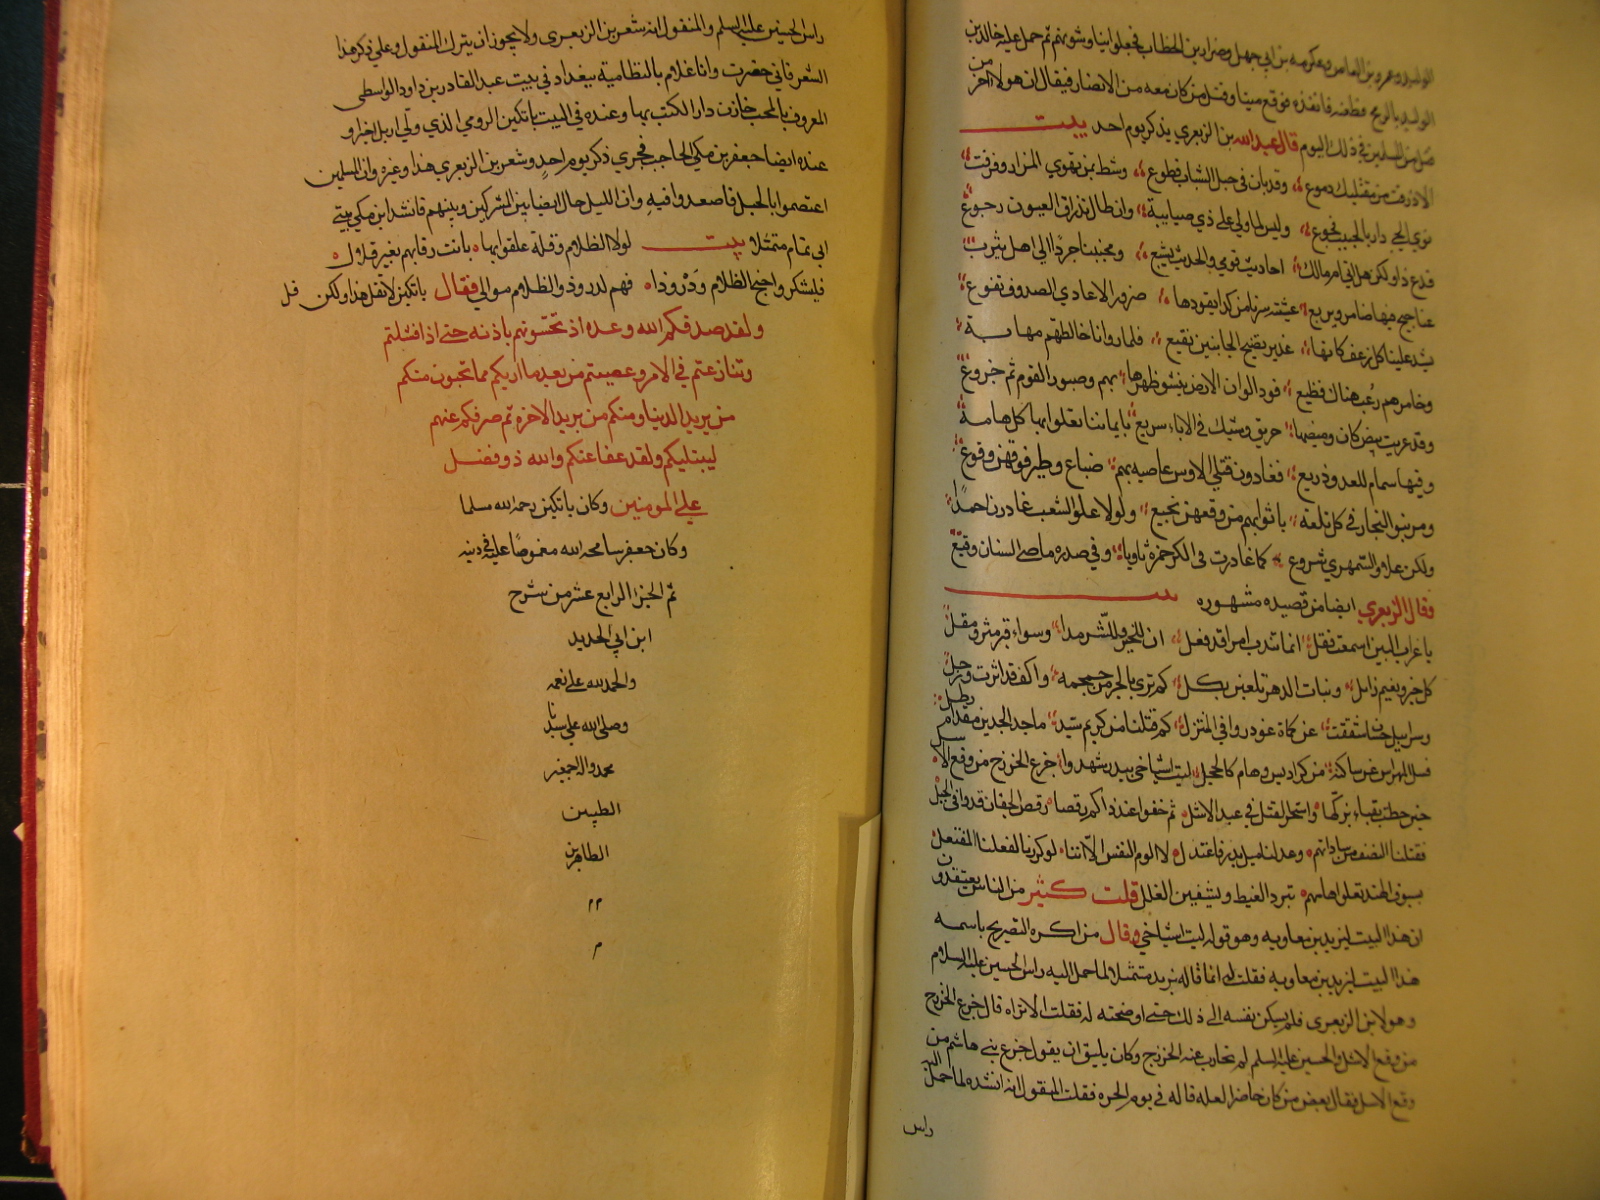 الوليد وعمرو بن العاص وعكرمه بن ابي جهل وضرار بن الخطاب فجعلوا يناوشونهم ثم حمل عليه خالد بن
الوليد بالرمح فطعنه فانفذه فوقع ميتا وقتل من كان معه من الانصار فيقال ان هولا اخر من
قتل من المسلمين في ذلك اليوم قال عبد الله بن الزبعري يذكر يوم احد بيت
الا ذرفت من مقلتيك دموع وقد بان في حبل الشباب قطوع وشط بمن تهوي المزار وفرقت
نوي الحي دار بالحبيب فجوع وليس لما ولي علي ذي صبابة وان طال تذراف العيون رجوع
فدع ذا ولكن هل اتي ام مالك احاديث قومي والحديث يشيع ومجنبنا جردًا الي اهل يثرب
عناجيج منها ضامر ونزيع عشية سرنا من كدا يقودها ضرور الاعادي للصدوق نفوع
يشد علينا كل زغف كانها غدير بضيح الجانبين نقيع فلما راونا خالطتهم مهابة
وخامرهم رعب هناك فظيع فود الوان الارض ينشو ظهرها بهم وصبور القوم ثم جزوع
وقد عريت بيض كان وميضها حريق وشيك في الاباء سريع بايماننا نعلو ابها كل هامة
وفيها سمام للعدو ذريع فغادرن قتلي الاوس عاصبه بهم ضباع وطير فوقهن وقوع
ومر بنو النجار في كل تلعة باثوابهم من وقعهن نجيع ولولا علو الشعب غادرنا حمدًا
ولكن علا والسمهري شروع كما غادرت في الكر حمزة ثاويا وفي صدره ماضي السنان وقيع
وقال الزبعري ايضا من قصيده مشهوره بيت
يا غراب البين اسمعت فقل انما تندب امرا قد فعل ان للخير وللشر مدا وسواء قبر مثر ومقل
كل خير ونعيم زايل وبنات الدهر تلعبن بكل كم تري بالجر من جمجمه واكف قد اثرت ورجل
وسرابيل حسان شققت عن كماة غودروا في المنتزل كم قتلنا من كريم سيد ماجد الجدين مقدام بطل
فسل المهراس من ساكنه من كراديس وهام كالحجل ليت اشياخي ببدر شهدوا جزع الخزرج من وقع الاسل
حين حطت بقباء بركها واستحر القتل في عبد الاشل ثم خفوا عند ذاكم رقصا رقص الحفان قدوا في الجبل
فقتلنا النصف من ساداتهم وعدلنا ميل بدر فاعتدل لا الوم النفس الا اننا لو كررنا لفعلنا المفتعل
بسوف الهند تعلوا هامهم تبرد الغيظ ويشفين الغلل قلت كثير من الناس يعتقدون
ان هذا البيت ليزيد بن معاويه وهو قوله ليت اشياخي وقال من اكره التصريح باسمه
هذا البيت ليزيد بن معاويه فقلت له انما قاله يزيد متمثلا لما حمل اليه راس الحسين عليه السلام
وهو لابن الزبعرى فلم يسكن نفسه الي ذلك حتي اوضحته له فقلت الا تراه قال جزع الخزرج
من وقع الاسل والحسين عليه السلم لم تحارب عنه الخزرج وكان يليق ان يقول جزع بني هاشم من
وقع الاسل فقال بعض من كان حاضرا لعله قاله في يوم الحره فقلت المنقول انه انشده لما حمل اليه
راس
راس الحسين عليه السلم والمنقول انه شعر بن الزبعرى ولا يجوز ان يترك المنقول وعلي ذكر هذا
الشعر فاني حضرت وانا غلام بالنظامية ببغداد في بيت عبد القادر بن داود الواسطى
المعروف بالمحب خازن دار الكتب بها وعنده في البيت باتكين الرومي الذي ولي اربل اخرا و
عنده ايضا جعفر بن مكي الحاجب فجري ذكر يوم احدٍ وشعر بن الزبعري هذا وغيره وان المسلمين
اعتصموا بالجبل فاصعدوا فيه وان الليل حال ايضا بين المشركين وبينهم فانشد ابن مكي بيتي
ابي تمام متمثلا بيت لولا الظلام وقلة علقوا بها باتت رقابهم بغير قلال
فليشكروا جنح الظلام ودروذا فهم لدروذ والظلام موالي فقال باتكين لا تقل هذا ولكن قل
ولقد صدقكم الله وعده اذ تحسونهم باذنه حتي اذا فشلتم
وتنازعتم في الامر وعصيتم من بعد ما اريكم مما تحبون منكم
من يريد الدنيا ومنكم من يريد الاخره ثم صرفكم عنهم
ليبتليكم ولقد عفا عنكم والله ذو فضل
علي المومنين وكان باتكين رحمه الله مسلما
وكان جعفر سامحه الله مغموصًا عليه في دينه
تم الجزا الرابع عشر من شرح
ابن ابي الحديد
والحمد لله علي نعمه
وصلي الله علي سيدنا
محمد واله اجمعين
الطيبين
الطاهرين
م م
م